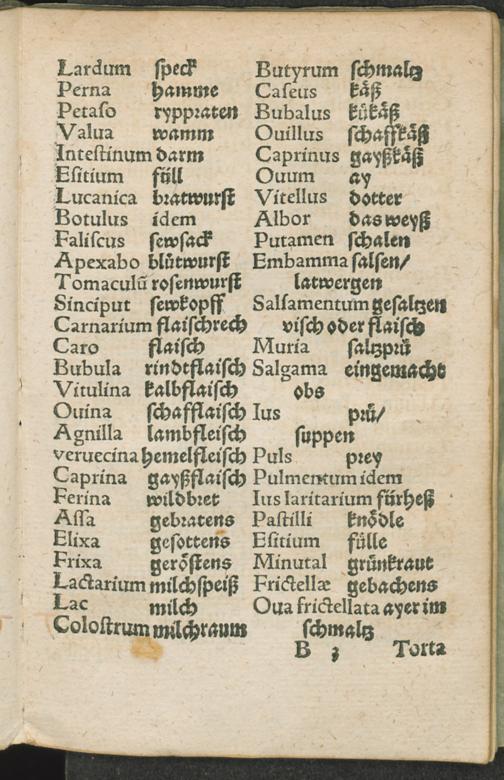 Lardum speck
Perna hamme
Petaſo ryppraten
Valua wamm
Inteſtinum darm
Eſitium füll
Lucanica bratwurſt
Botulus idem
Faliſcus ſewſack
Apexabo blůtwurſt
Tomaculū roſenwurſt
Sinciput ſewkopff
Carnarium flaiſchrech
Caro flaiſch
Bubula rindtflaiſch
Vitulina kalbflaiſch
Ouina ſchafflaiſch
Agnilla lambfleiſch
veruecina hemelfleiſch
Caprina gayßflaiſch
Ferina wildbret
Aſſa gebratens
Elixa geſottens
Frixa geröſtens
Lactarium milchſpeiß
Lac milch
Coloſtrum milchraum
Butyrum ſchmaltz
Caſeus käß
Bubalus kükäß
Ouillus ſchaffkäß
Caprinus gayßkäß
Ouum ay
Vitellus dotter
Albor das weyß
Putamen ſchalen
Embamma ſalſen/
latwergen
Salſamentum geſaltzen
viſch oder flaiſch
Muria ſaltzprü
Salgama eingemacht
obs
Ius prü/
ſuppen
Puls prey
Pulmentum idem
Ius Iaritarium fürheß
Paſtilli knödle
Eſitium fülle
Minutal grünkraut
Frictellæ gebachens
Oua frictellata ayer im
ſchmaltz
B 3 Torta